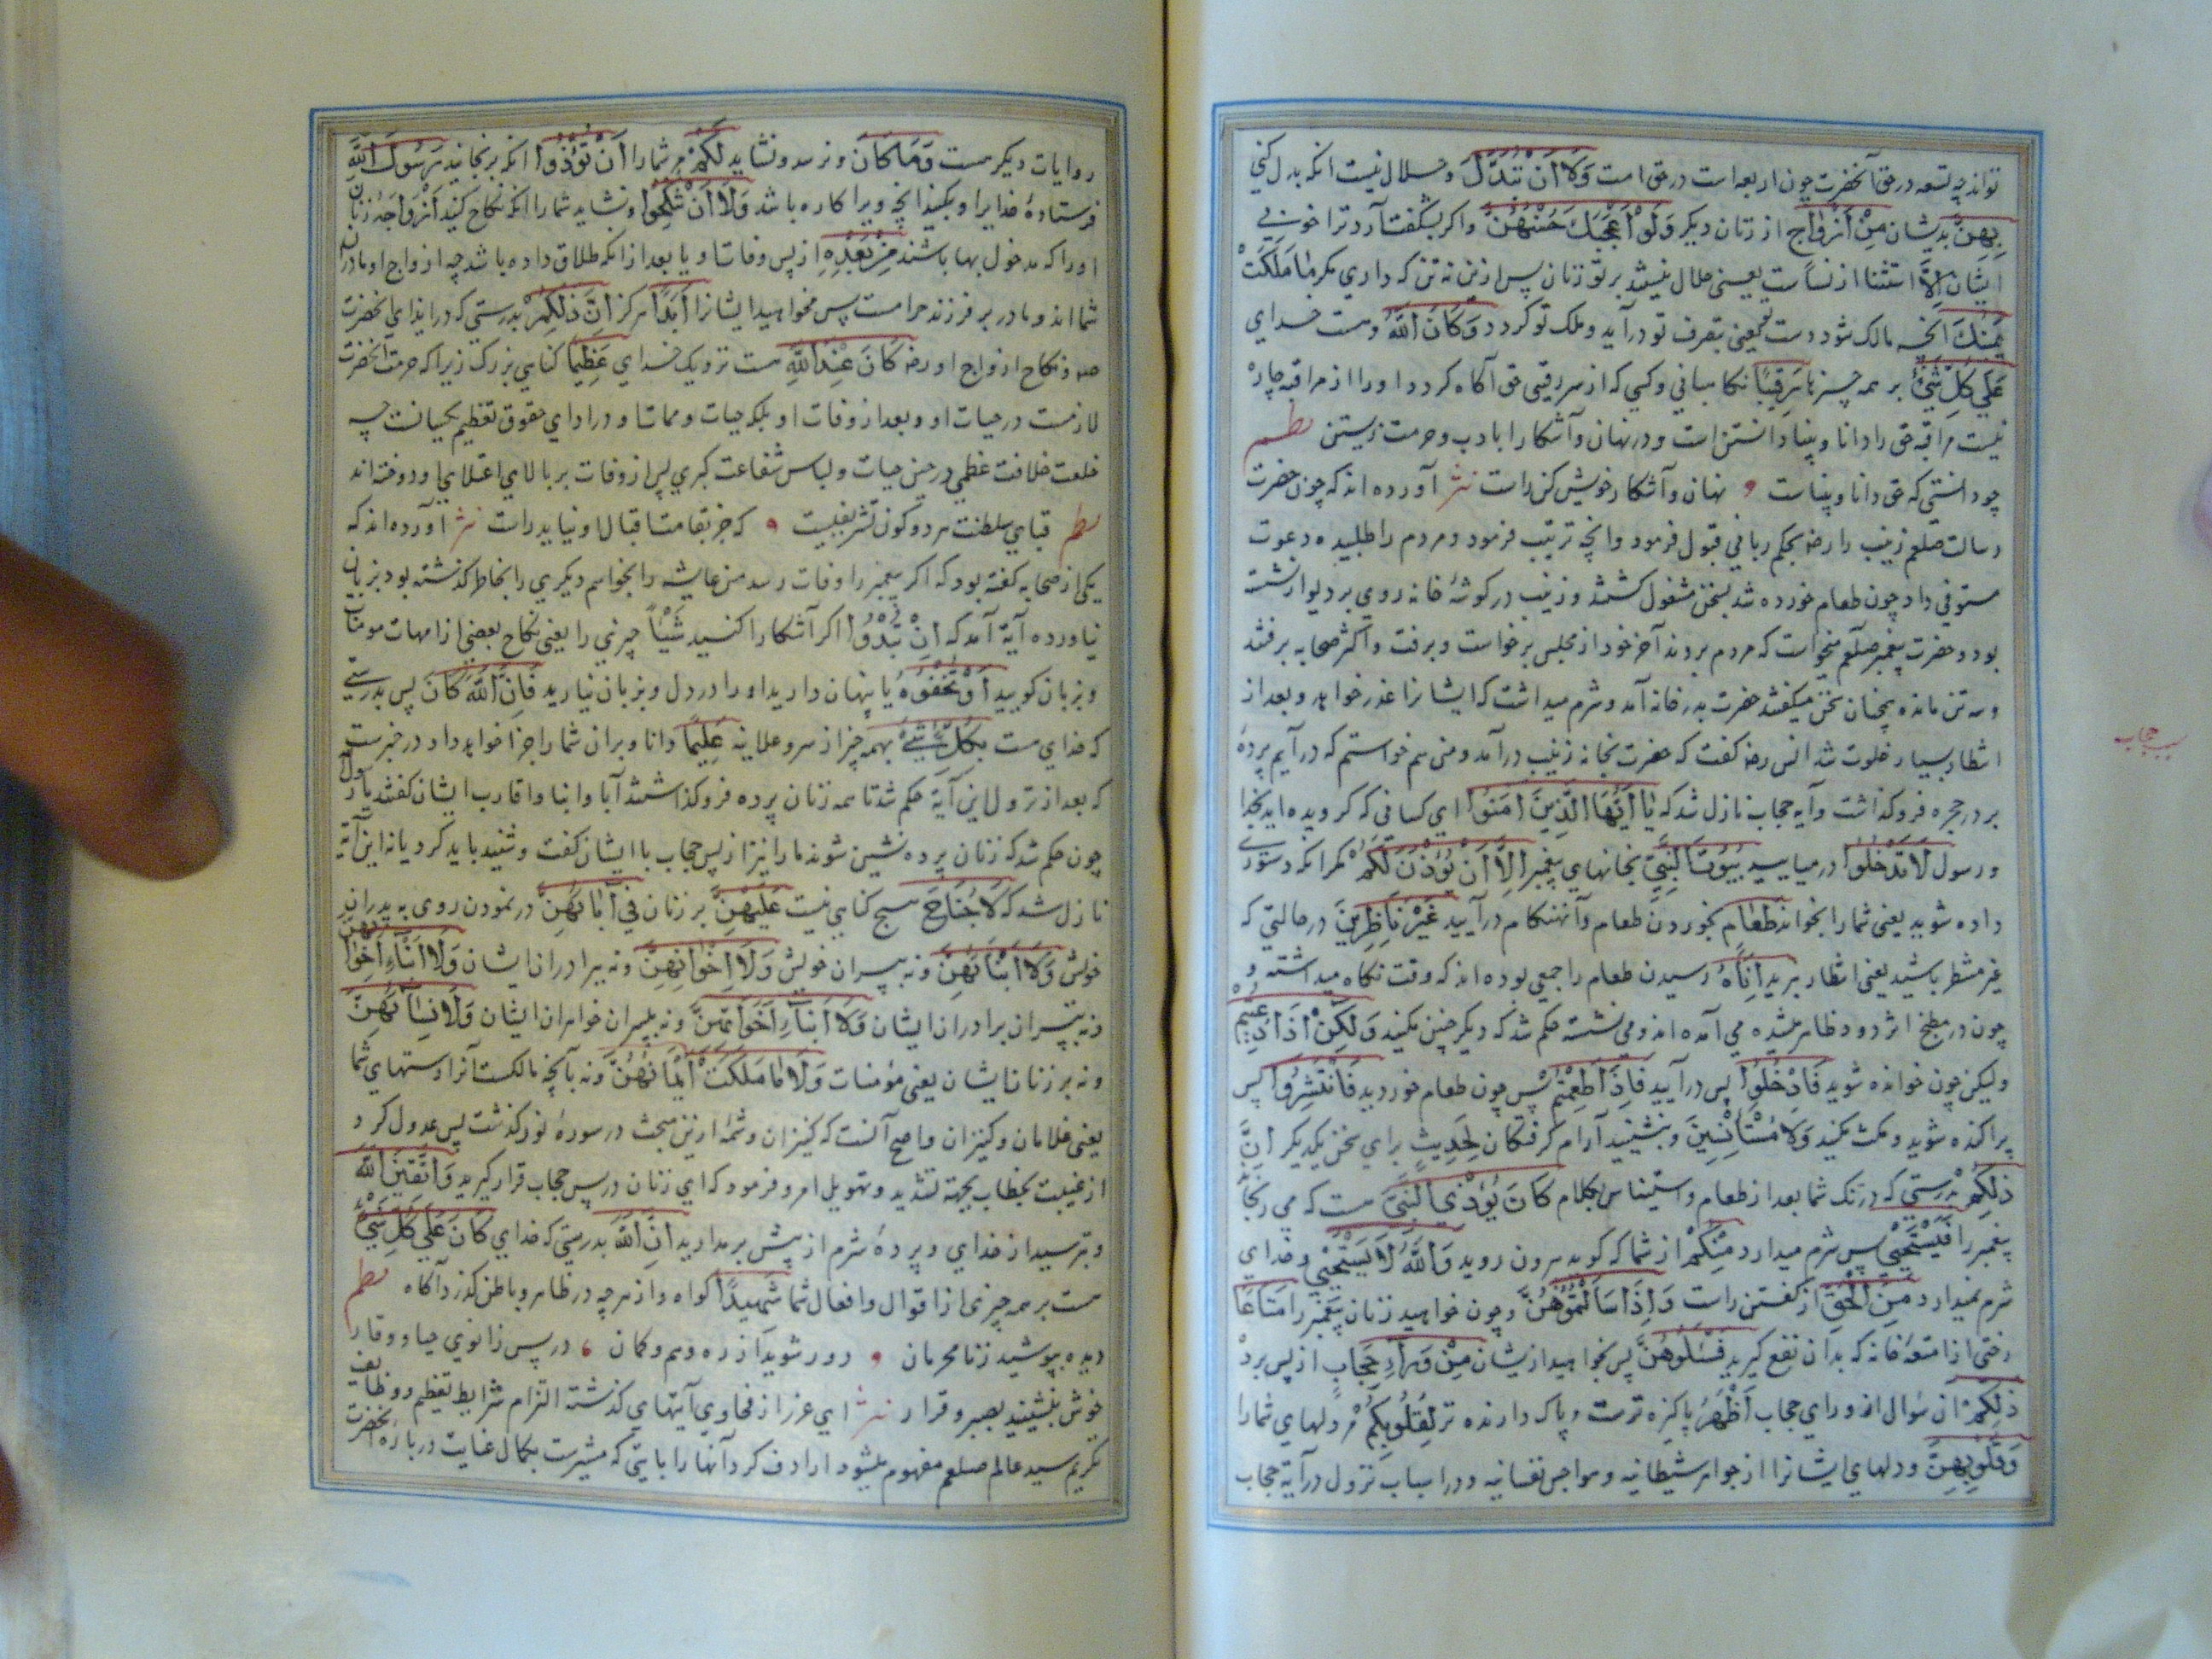 تواند چه تسعه در حق آنحضرت چون اربعه است در حق امت وَلَا أَنْ تَبَدَّلَ و حلال نیست انکه بدل کنی
بِهِنَّ بدیشان مِنْ أَزْوَاجٍ از زنان دیکر وَلَوْ أَعْجَبَكَ حُسْنُهُنَّ واکر بشکفت آرد ترا خوبی
ایشان إِلَّا استثنا از نساست یعنی حلال نیستند بر تو زنان پس ازین نه تن که داری مکر مَا مَلَكَتْ
يَمِينُكَ آنچه مالک شود دست تو یعنی بتصرف تو درآید و ملک تو کردد وَكَانَ اللَّهُ و هست خدای
عَلَى كُلِّ شَيْءٍ بر همه چیزها رَقِيبًا نکاهبانی و کسی که از سر رقیبی حق آکاه کردد او را از مراقبه چاره
نیست مراقبه حق را دانا و بینا دانستن است و در نهان و آشکارا با ادب و حرمت زیستن نظم
چو دانستی که حق دانا و بیناست نهان و آشکار خویش کن راست نثر آورده اند که چون حضرت
رسالت صلعم زینب را رضه بحکم ربانی قبول فرمود و انچه ترتیب فرمود و مردم را طلبیده دعوت
مستوفی داد چون طعام خورده شد بسخن مشغول کشتند و زینب در کوشهٔ خانه روی بر دیوار نشسته
بود و حضرت پیغمبر صلعم میخواست که مردم بروند آخر خود از مجلس برخواست و برفت و اکثر صحابه برفتند
و سه تن مانده بچنان سخن میکفتند حضرت بدر خانه آمد و شرم میداشت که ایشانرا عذر خواهد و بعد از
انتظار بسیار خلوت شد انس رضه کفت که حضرت بخانه زینب درآمد و من هم خواستم که درآیم پردهٔ
بر در حجره فروکذاشت و آیه حجاب نازل شد که يَا أَيُّهَا الَّذِينَ آمَنُوا ای کسانی که کرویده اید بخدا
و رسول لَا تَدْخُلُوا درمیایید بُيُوتَ النَّبِيِّ بخانهای پیغمبر إِلَّا أَنْ يُؤْذَنَ لَكُمْ مکر انکه دستوری
داده شوید یعنی شما را بخوانند طَعَامٍ بخوردن طعام و آنهنکام درآیید غَيْرَ نَاظِرِينَ در حالتی که
غیر منتظر باشید یعنی انتظار نبرید إِنَاهُ رسیدن طعام را جمعی بوده اند که وقت نکاه میداشته و
چون در مطبخ اثر دود ظاهر میشده می آمده اند و می نشسته حکم شد که دیکر چنین نکنید وَلَكِنْ إِذَا دُعِيتُمْ
ولیکن چون خوانده شوید فَادْخُلُوا پس درآیید فَإِذَا طَعِمْتُمْ پس چون طعام خوردید فَانْتَشِرُوا پس
پراکنده شوید و مکث نکنید وَلَا مُسْتَأْنِسِينَ و ننشینید آرام کرفتکان لِحَدِيثٍ برای سخن یکدیکر إِنَّ
ذَلِكُمْ بدرستی که درنک شما بعد از طعام و استیناس بکلام كَانَ يُؤْذِي النَّبِيَّ هست که می رنجاند
پیغمبر را فَيَسْتَحْيِي پس شرم میدارد مِنْكُمْ از شما که کوید بیرون روید وَاللَّهُ لَا يَسْتَحْيِي و خدای
شرم نمیدارد مِنَ الْحَقِّ از کفتن راست وَإِذَا سَأَلْتُمُوهُنَّ و چون خواهید زنان پیغمبر را مَتَاعًا
رختی از امتعهٔ خانه که بدان نفع کیرید فَسْئَلُوهُنَّ پس بخواهید ازیشان مِنْ وَرَاءِ حِجَابٍ از پس پرده
ذَلِكُمْ آن سوال از ورای حجاب أَطْهَرُ پاکیزه ترست و پاک دارنده تر لِقُلُوبِكُمْ مر دلهای شما را
وَقُلُوبِهِنَّ و دلهای ایشانرا از خواطر شیطانیه و هواجس نفسانیه و در اسباب نزول در آیة حجاب
سبب حجاب
روایات دیکر هست وَمَا كَانَ و نرسد و نشاید لَكُمْ مر شما را أَنْ تُؤْذُوا انکه برنجانید رَسُولَ اللَّهِ
فرستادهٔ خدایرا و بکنید انچه ویرا کاره باشد وَلَا أَنْ تَنْكِحُوا و نشاید شما را انکه نکاح کنید أَزْوَاجَهُ زنان
او را که مدخول بها باشند مِنْ بَعْدِهِ از پس وفات او یا بعد از انکه طلاق داده باشد چه ازواج او مادران
شما اند و مادر بر فرزند حرامست پس مخواهید ایشانرا أَبَدًا هرکز إِنَّ ذَلِكُمْ بدرستی که در ایذای آنحضرت
صه و نکاح ازواج او رضه كَانَ عِنْدَ اللَّهِ هست نزدیک خدای عَظِيمًا کناهی بزرک زیرا که حرمت آنحضرت
لازمست در حیات او و بعد از وفات او بلکه حیات و ممات او در ادای حقوق تعظیم یکسانست چه
خلعت خلافت عظمی در حین حیات و لباس شفاعت کبری پس از وفات بر بالای اعتلای او دوخته اند
نظم قبای سلطنت هر دو کون تشریفیست که جز بقامت اقبال او نیاید راست نثر آورده اند که
یکی از صحابه کفته بود که اکر پیغمبر را وفات رسد من عایشه را بخواهم دیکری را بخاطر کذشته بود بزبان
نیاورده آیة آمد که إِنْ تُبْدُوا اکر آشکارا کنید شَيْئًا چیزی را یعنی نکاح بعضی از امهات مومنان
و بزبان کویید أَوْ تُخْفُوهُ یا پنهان دارید او را در دل و بزبان نیارید فَإِنَّ اللَّهَ كَانَ پس بدرستی
که خدای هست بِكُلِّ شَيْءٍ بهمه چیز از سر و علانیه عَلِيمًا دانا و بران شما را جزا خواهد داد در خبرست
که بعد از نزول این آیة حکم شد تا همه زنان پرده فروکذاشتند آبا و ابنا و اقارب ایشان کفتند یا رسول
چون حکم شد که زنان پرده نشین شوند ما را نیز از پس حجاب با ایشان کفت و شنید باید کرد یا نه این آیة
نازل شد که لَا جُنَاحَ هیچ کناهی نیست عَلَيْهِنَّ بر زنان فِي آبَائِهِنَّ در نمودن روی به پدران
خویش وَلَا أَبْنَائِهِنَّ و نه به پسران خویش وَلَا إِخْوَانِهِنَّ و نه ببرادران ایشان وَلَا أَبْنَاءِ إِخْوَانِهِنَّ
و نه بپسران برادران ایشان وَلَا أَبْنَاءِ أَخَوَاتِهِنَّ و نه بپسران خواهران ایشان وَلَا نِسَائِهِنَّ
و نه بر زنان ایشان یعنی مؤمنات وَلَا مَا مَلَكَتْ أَيْمَانُهُنَّ و نه بآنچه مالکست آنرا دستهای شما
یعنی غلامان و کنیزان و اصح آنست که کنیزان و شمهٔ ازین مبحث در سورهٔ نور کذشت پس عدول کرد
از غیبت بخطاب بجهة تشدید و تهویل امر و فرمود که ای زنان در پس حجاب قرار کیرید وَاتَّقِينَ اللَّهَ
و بترسید از خدای و پردهٔ شرم از پیش برمدارید إِنَّ اللَّهَ بدرستی که خدای كَانَ عَلَى كُلِّ شَيْءٍ
هست بر همه چیزی از اقوال و افعال شما شَهِيدًا کواه و از هرچه در ظاهر و باطن کذرد آکاه نظم
دیده بپوشید ز نامحرمان دور شوید از ره وهم و کمان در پس زانوی حیا و وقار
خوش بنشینید بصبر و قرار نثر ای عزیز از فحاوی آیتهای کذشته التزام شرایط تعظیم و وظایف
تکریم سید عالم صلعم مفهوم میشود ارادف کرد آنها را بایتی که مشیرست بکمال عنایت دربارهٔ آنحضرت